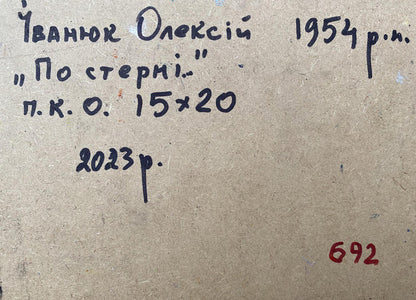 Іванюк Олексій 1954 р.н.
"По стерні..."
п.к.о. 15×20
2023р.
692